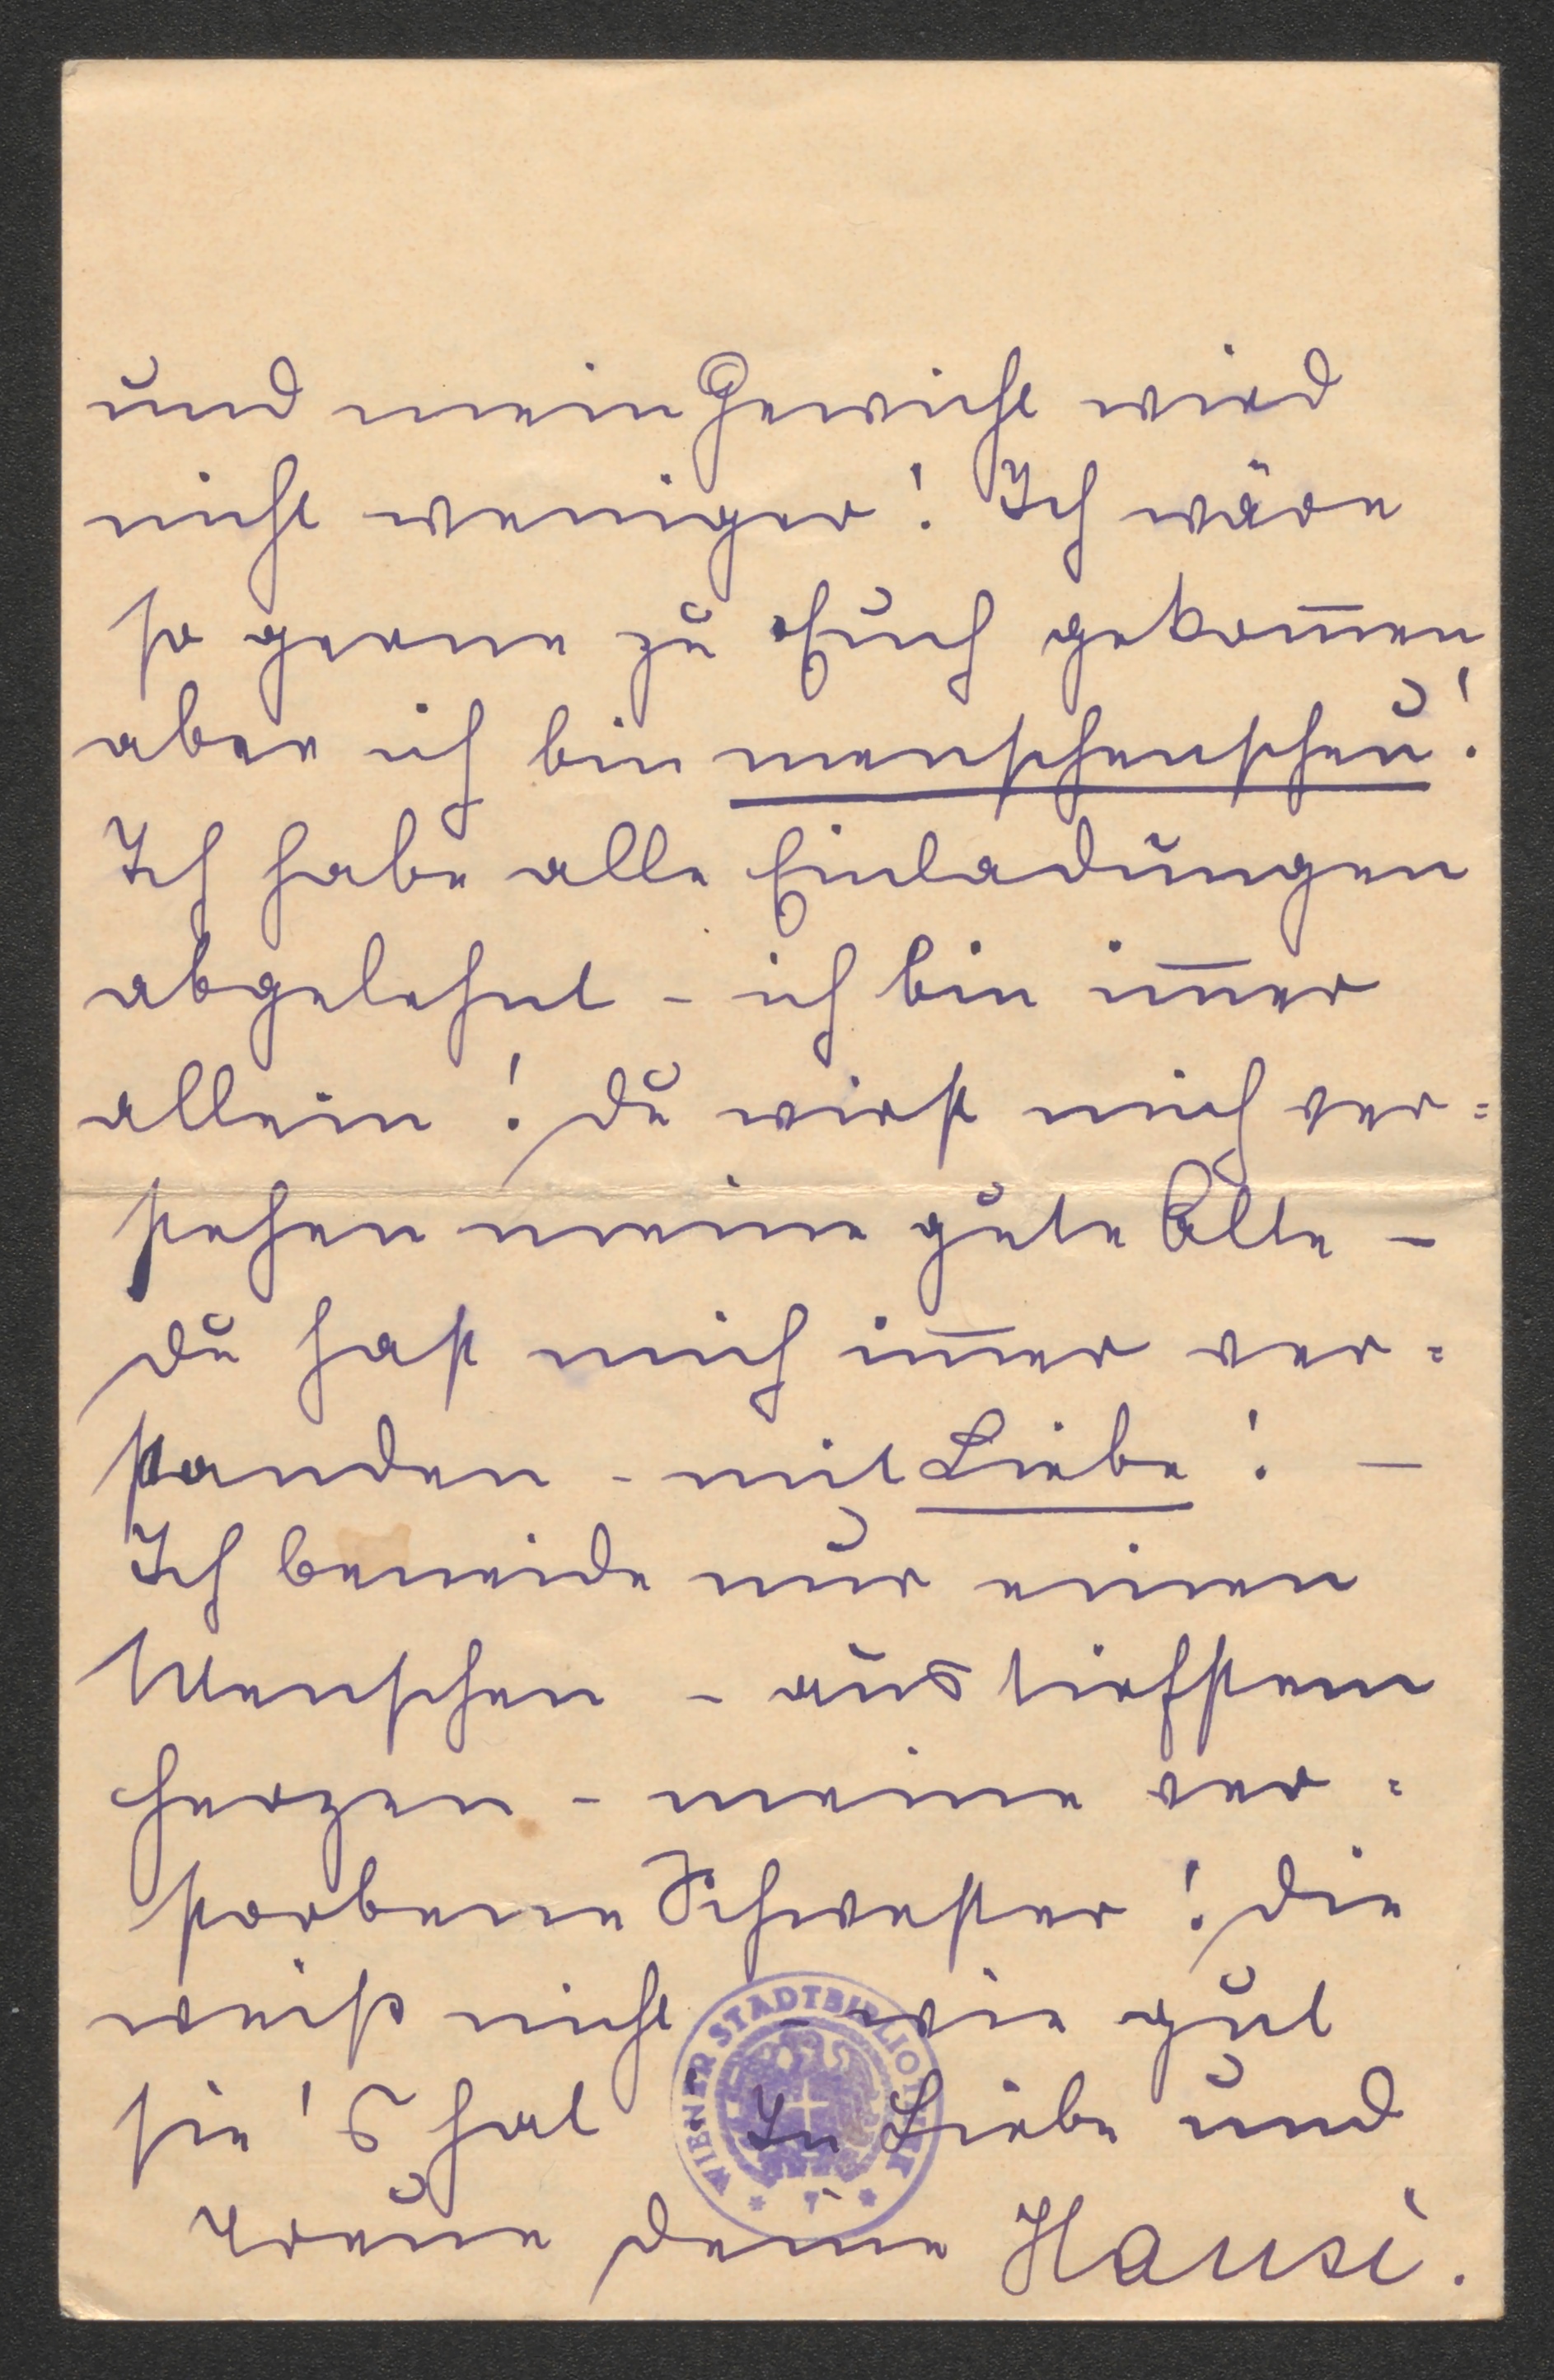 und mein Gewicht wird
nicht weniger! Ich wäre
so gerne zu Euch gekom̅en
aber ich bin menschenscheu!
Ich habe alle Einladungen
abgelehnt – ich bin im̅er
allein! Du wirst mich ver=
stehen meine gute Alte –
Du hast mich im̅er ver=
standen – mit Liebe! –
Ich beneide nur einen
Menschen – aus tiefstem
Herzen – meine ver=
storbene Schwester! Die
weiß nicht – wie gut
sie's hat In Liebe und
Treue Deine Hansi.
WIENER STADTBIBLIOTHEK